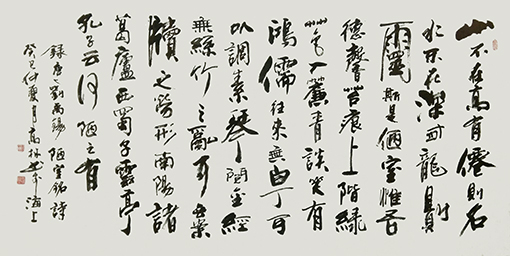 山不在高有僊則名
水不在深有龍則
靈斯是陋室惟吾
德馨苔痕上階緑
草色入簾青談笑有
鴻儒往来無白丁可
以調素琴閲金經
無絲竹之亂耳無案
牘之勞形南陽諸
葛廬西蜀子雲亭
孔子云何陋之有
録唐劉禹錫陋室銘詩
癸巳仲夏月高林海上